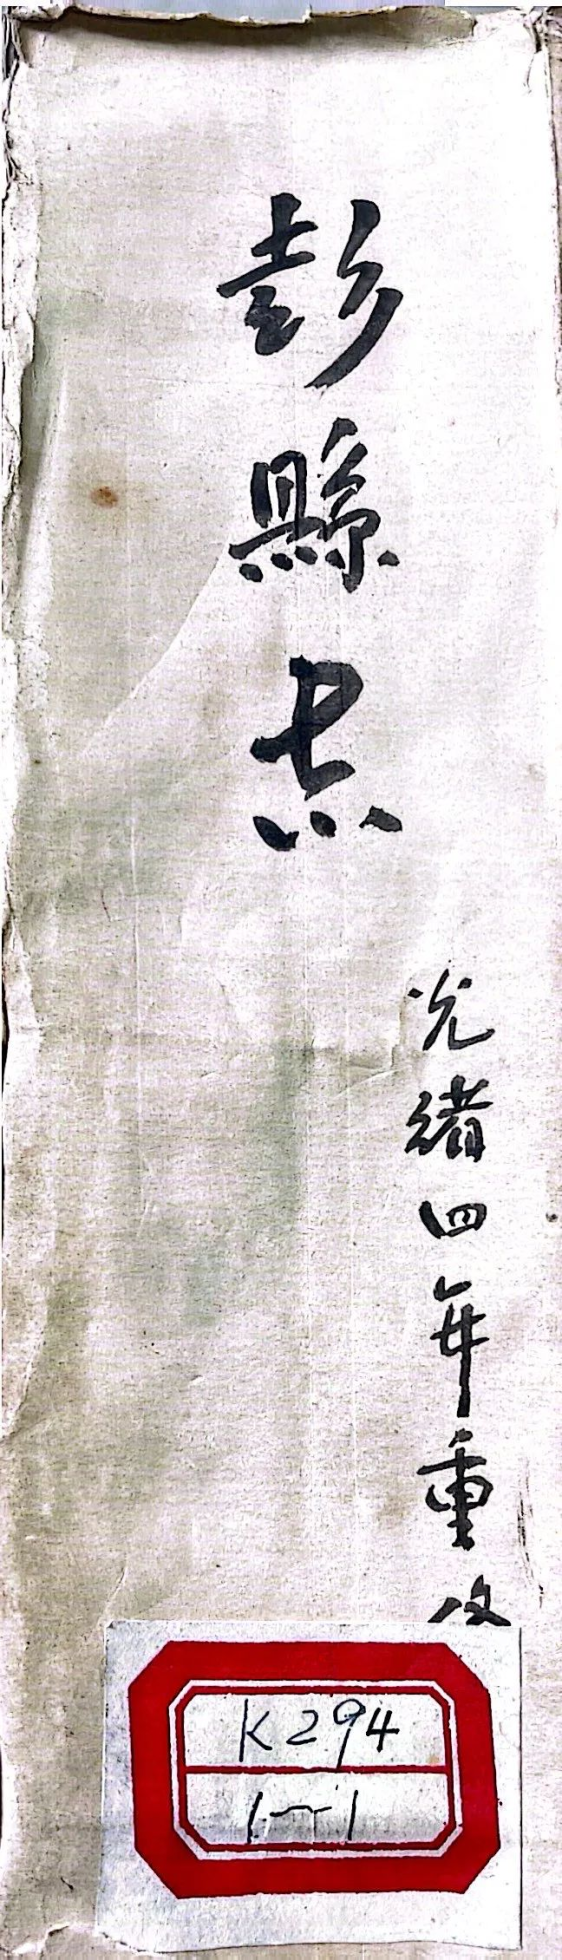 彭縣志
光緒四年重修
K294
1-1